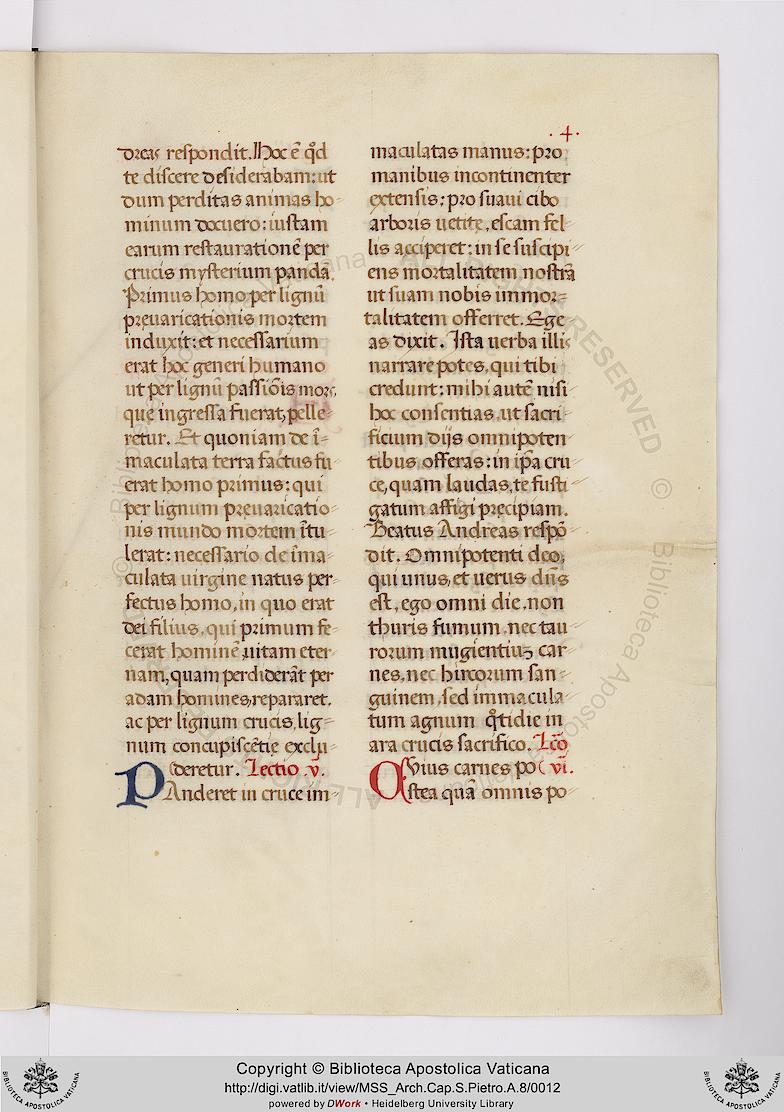 .4.
dreas respondit. Hoc ē qd̄
te discere desiderabam: ut
dum perditas animas ho-
minum docuero: iustam
earum restaurationē per
crucis mysterium pandā.
Primus homo per lignū
pręuaricationis mortem
induxit: et necessarium
erat hoc generi humano
ut per lignū passiōis mors,
que ingressa fuerat, pelle-
retur. Et quoniam de ī-
maculata terra factus fu-
erat homo primus: qui
per lignum preuaricatio-
nis mundo mortem ītu-
lerat: necessario de īma-
culata uirgine natus per-
fectus homo, in quo erat
dei filius, qui primum fe-
cerat hominē, uitam eter-
nam, quam perdiderāt per
adam homines, repararet.
ac per lignum crucis, lig-
num concupiscētię exclu-
deretur. Lectio .v.
PAnderet in cruce im-
maculatas manus: pro
manibus incontinenter
extensis: pro suaui cibo
arboris uetitę, escam fel-
lis acciperet: in se suscipi-
ens mortalitatem nostrā
ut suam nobis immor-
talitatem offerret. Ege-
as dixit. Ista uerba illis
narrare potes, qui tibi
credunt: mihi autē nisi
hoc consentias, ut sacri-
ficium dijs omnipoten-
tibus offeras: in ip̄a cru-
ce, quam laudas, te fusti-
gatum affigi pręcipiam.
Beatus Andreas respō-
dit. Omnipotenti deo,
qui unus, et uerus dn̄s
est, ego omni die, non
thuris fumum, nec tau-
rorum mugientiuꝫ car-
nes, nec hircorum san-
guinem, sed immacula-
tum agnum qͦtidie in
ara crucis sacrifico. Lc̄o
Cuius carnes po- vi.
stea quā omnis po-
Copyright © Biblioteca Apostolica Vaticana
http://digi.vatlib.it/view/MSS_Arch.Cap.S.Pietro.A.8/0012
powered by DWork • Heidelberg University Library